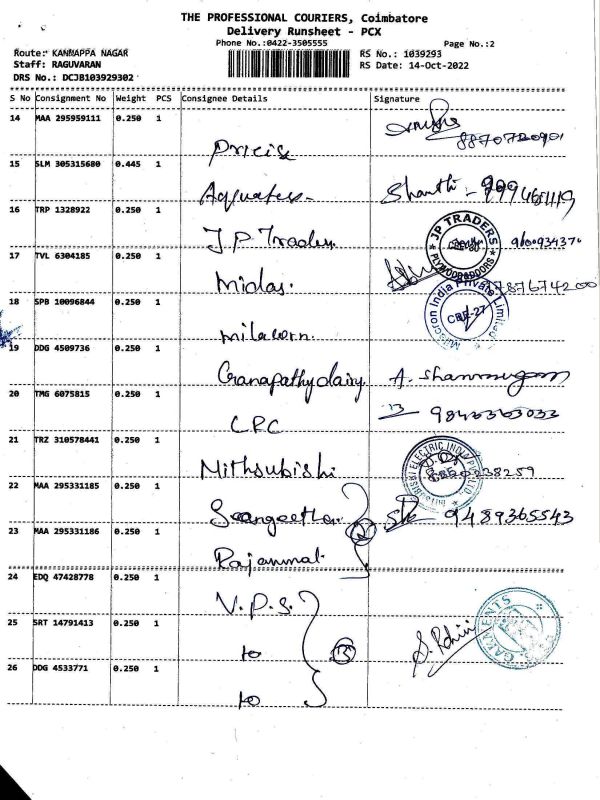 THE PROFESSIONAL COURIERS, Coimbatore
Delivery Runsheet - PCX
Phone No.:0422-3505555
Page No.:2
Route: KANNAPPA NAGAR
RS No.: 1039293
Staff: RAGUVARAN
RS Date: 14-Oct-2022
DRS No.: DCJB103929302
S No Consignment No Weight PCS Consignee Details Signature
14 MAA 295959111 0.250 1
8870720901
Pricise
15 SLM 305315680 0.445 1
Aquatess Shanthi - 9994651119
16 TRP 1328922 0.250 1
J.P Traders JP TRADERS PLYWOOD & DOORS
17 TVL 6304185 0.250 1
Midas. 787674200
18 SPB 10096844 0.250 1
Milacorn. India Private Limited CBE-27
19 DDG 4509736 0.250 1
Ganapathy dairy A. Shanmugam
20 TMG 6075815 0.250 1
CRC
21 TRZ 310578441 0.250 1
Mithsubishi MITSUBISHI ELECTRIC INDIA PVT. LTD.
22 MAA 295331185 0.250 1
Sangeetha 9489365543
23 MAA 295331186 0.250 1
Rajammal
24 EDQ 47428778 0.250 1
V.P.S.
25 SRT 14791413 0.250 1
to S. Rohini GARMENTS
26 DDG 4533771 0.250 1
to